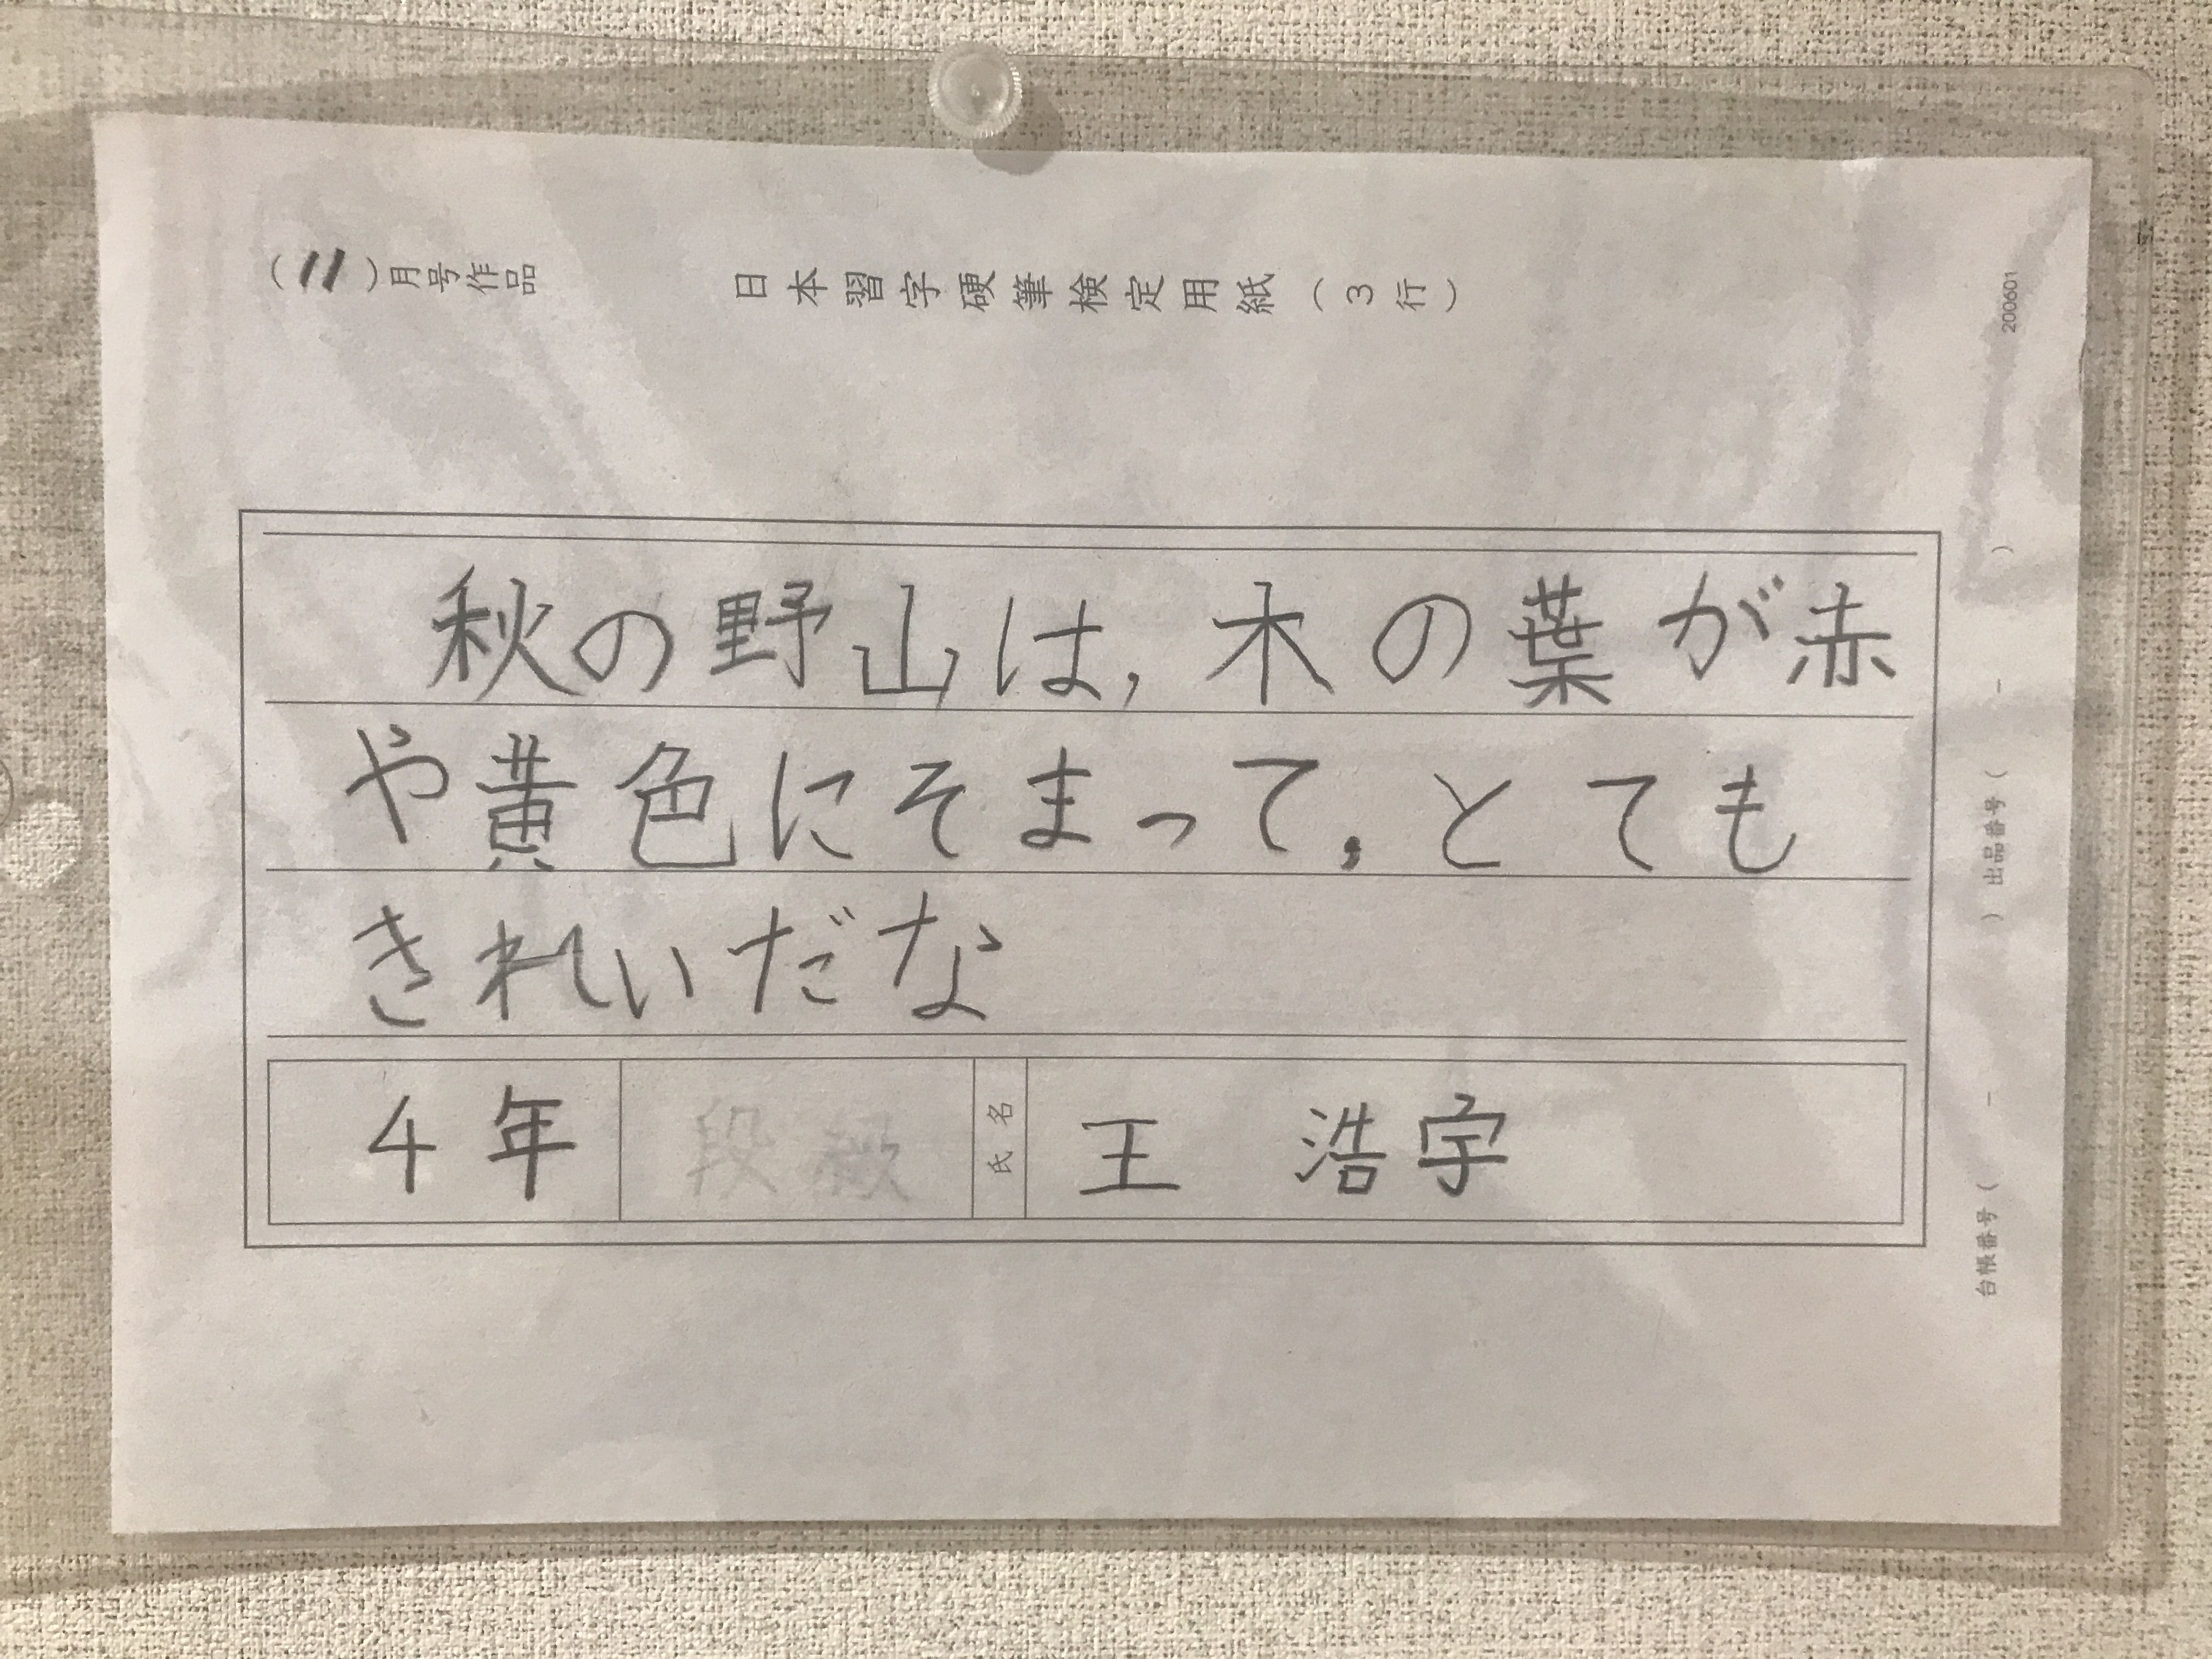 (11)月号作品
日本習字硬筆検定用紙(3行)
200601
秋の野山は,木の葉が赤
や黄色にそまって,とても
きれいだな
4年 段級 氏名 王 浩宇
台帳番号( - ) 出品番号( - )